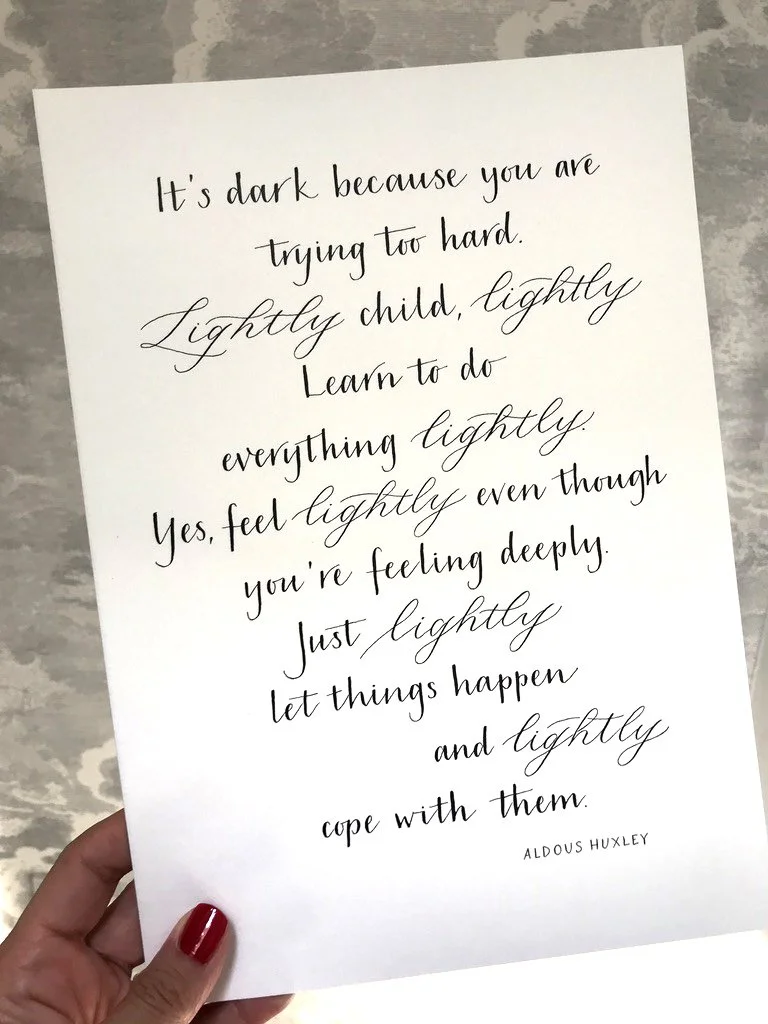 It's dark because you are
trying too hard.
Lightly child, lightly
Learn to do
everything lightly.
Yes, feel lightly even though
you're feeling deeply.
Just lightly
let things happen
and lightly
cope with them.
ALDOUS HUXLEY